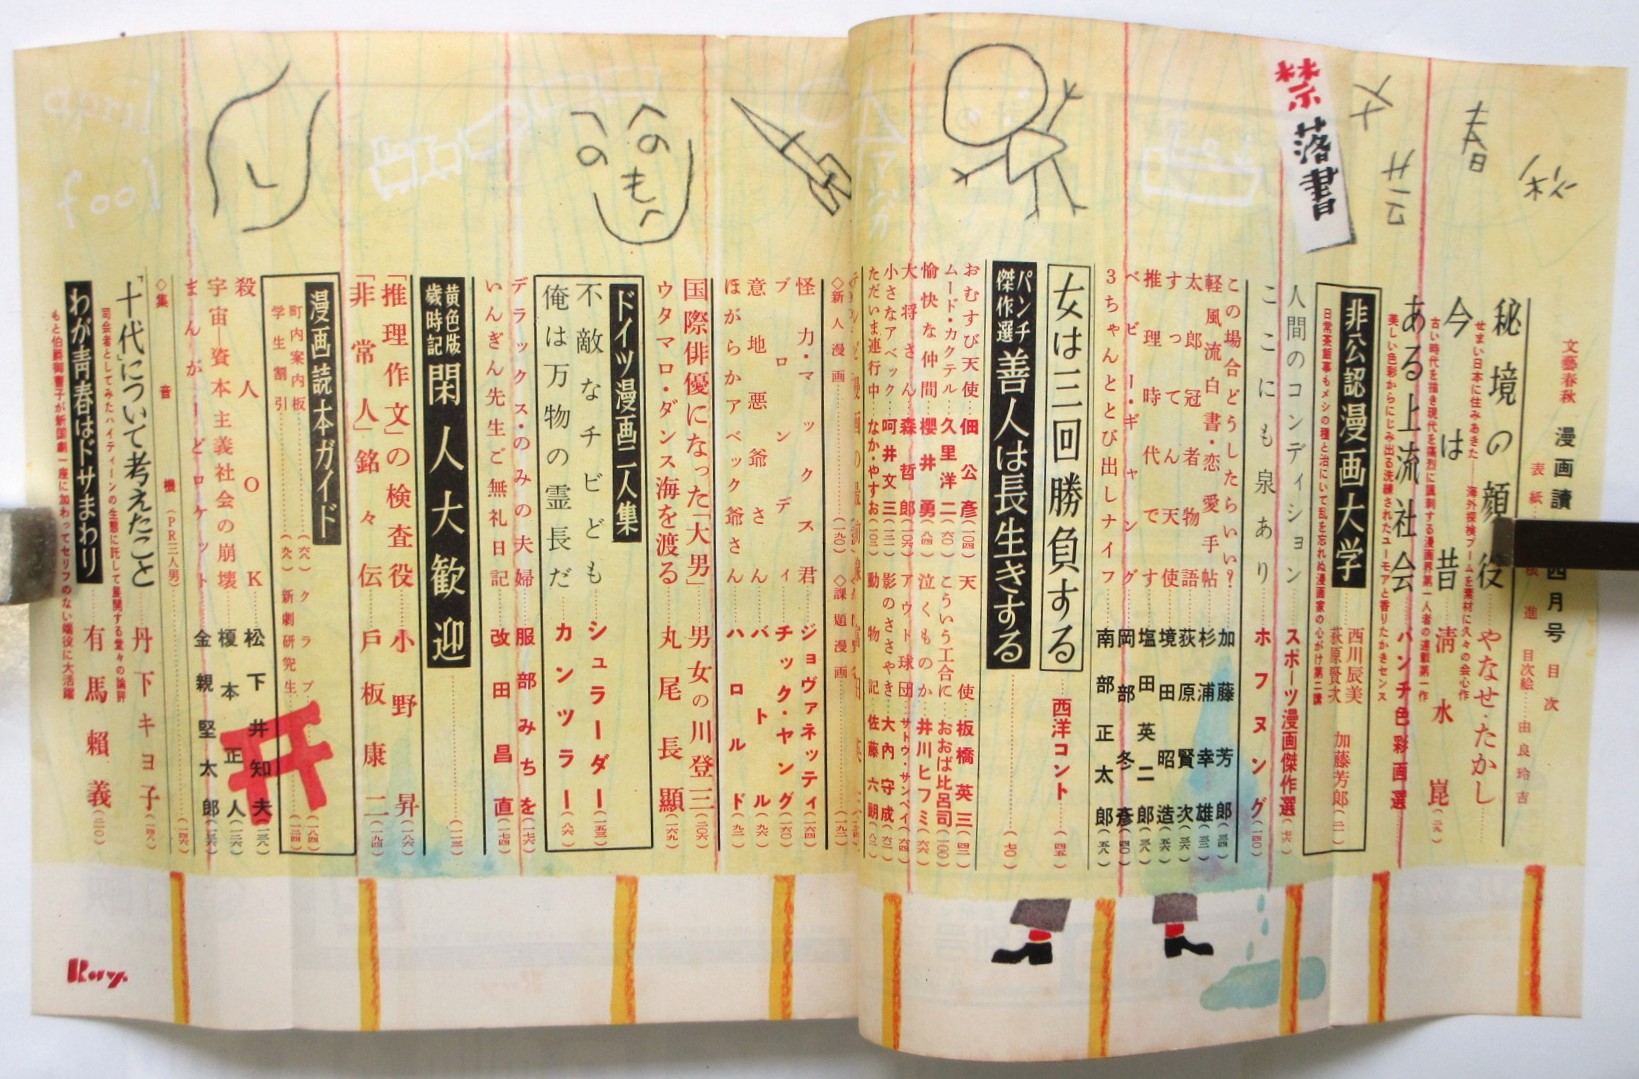 文藝春秋
漫画讀
四月号
目次
表紙
進
目次絵
由良玲吉
秘境の顔役
やなせ・たかし
せまい日本に住みあきた
海外探検ブームを素材に久々の会心作
今は昔
清水崑
古い時代を描き現代を痛烈に諷刺する漫画界第一人者の連載第一作
ある上流社会
パンチ色彩画選
美しい色彩からにじみ出る洗練されたユーモアと香りたかきセンス
非公認漫画大学
西川辰美
荻原賢次
加藤芳郎
日常茶飯事もメシの種と治にいて乱を忘れぬ漫画家の心がけ第二課
人間のコンディション
スポーツ漫画傑作選
ここにも泉あり
ホフヌング
この場合どうしたらいい?
加藤芳郎
軽風流白書・恋愛手帖
杉浦幸雄
太郎冠者物語
荻原賢次
すってん天使
境田昭造
推理時代です
塩田英二郎
ベビー・ギャング
岡部冬彦
3ちゃんととび出しナイフ
南部正太郎
女は三回勝負する
西洋コント
パンチ傑作選
善人は長生きする
おむすび天使
佃公彦
ムード・カクテル
久里洋二
愉快な仲間
櫻井勇
大将さん
森哲郎
小さなアベック
呵井文三
ただいま連行中
なか・やすお
天使
板橋英三
こういう工合に
おおば比呂司
泣くものか
井川ヒフミ
アウト球団
サトウ・サンペイ
影のささやき
大内守成
動物記
佐藤六朗
◇新人漫画
◇課題漫画
怪力・マックス君
ジョヴァネッティ
ブロンディ
チック・ヤング
意地悪爺さん
バトル
ほがらかアベック爺さん
ハロルド
国際俳優になった「大男」
男女の川登三
ウタマロ・ダンス海を渡る
丸尾長顯
ドイツ漫画二人集
不敵なチビども
シュラーダー
俺は万物の霊長だ
カンツラー
デラックス・のみの夫婦
服部みちを
いんぎん先生ご無礼日記
改田昌直
黄色版歳時記
閑人大歓迎
「推理作文」の検査役
小野昇
「非常人」銘々伝
戸板康二
漫画読本ガイド
町内案内板
クラブ
学生割引
新劇研究生
殺人OK
松下井知夫
宇宙―資本主義社会の崩壊
榎本正一人
まんが―どロケット
金親堅太郎
◇集音機
(PR三人男)
「十代」について考えたこと
丹下キヨ子
司会者としてみたハイティーンの生態に託して展開する堂々の論評
わが青春はドサまわり
有馬頼義
もと伯爵御曹子が新国劇一座に加わってセリフのない端役に大活躍
禁落書
文
芸
春
秋
へのへのもへ
し
april
fool
Ray.